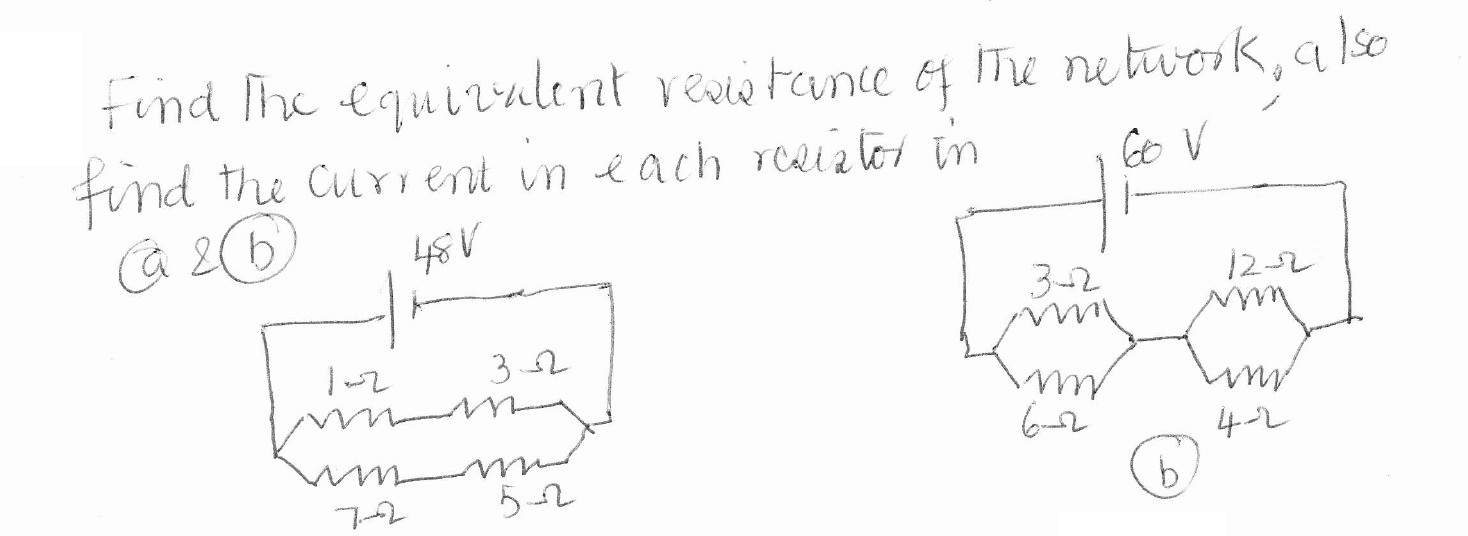 Find The equivalent resistance of The network, also
find the current in each resistor in
ⓐ & ⓑ
48V
1Ω
3Ω
7Ω
5Ω
60 V
3Ω
12Ω
6Ω
4Ω
ⓑ